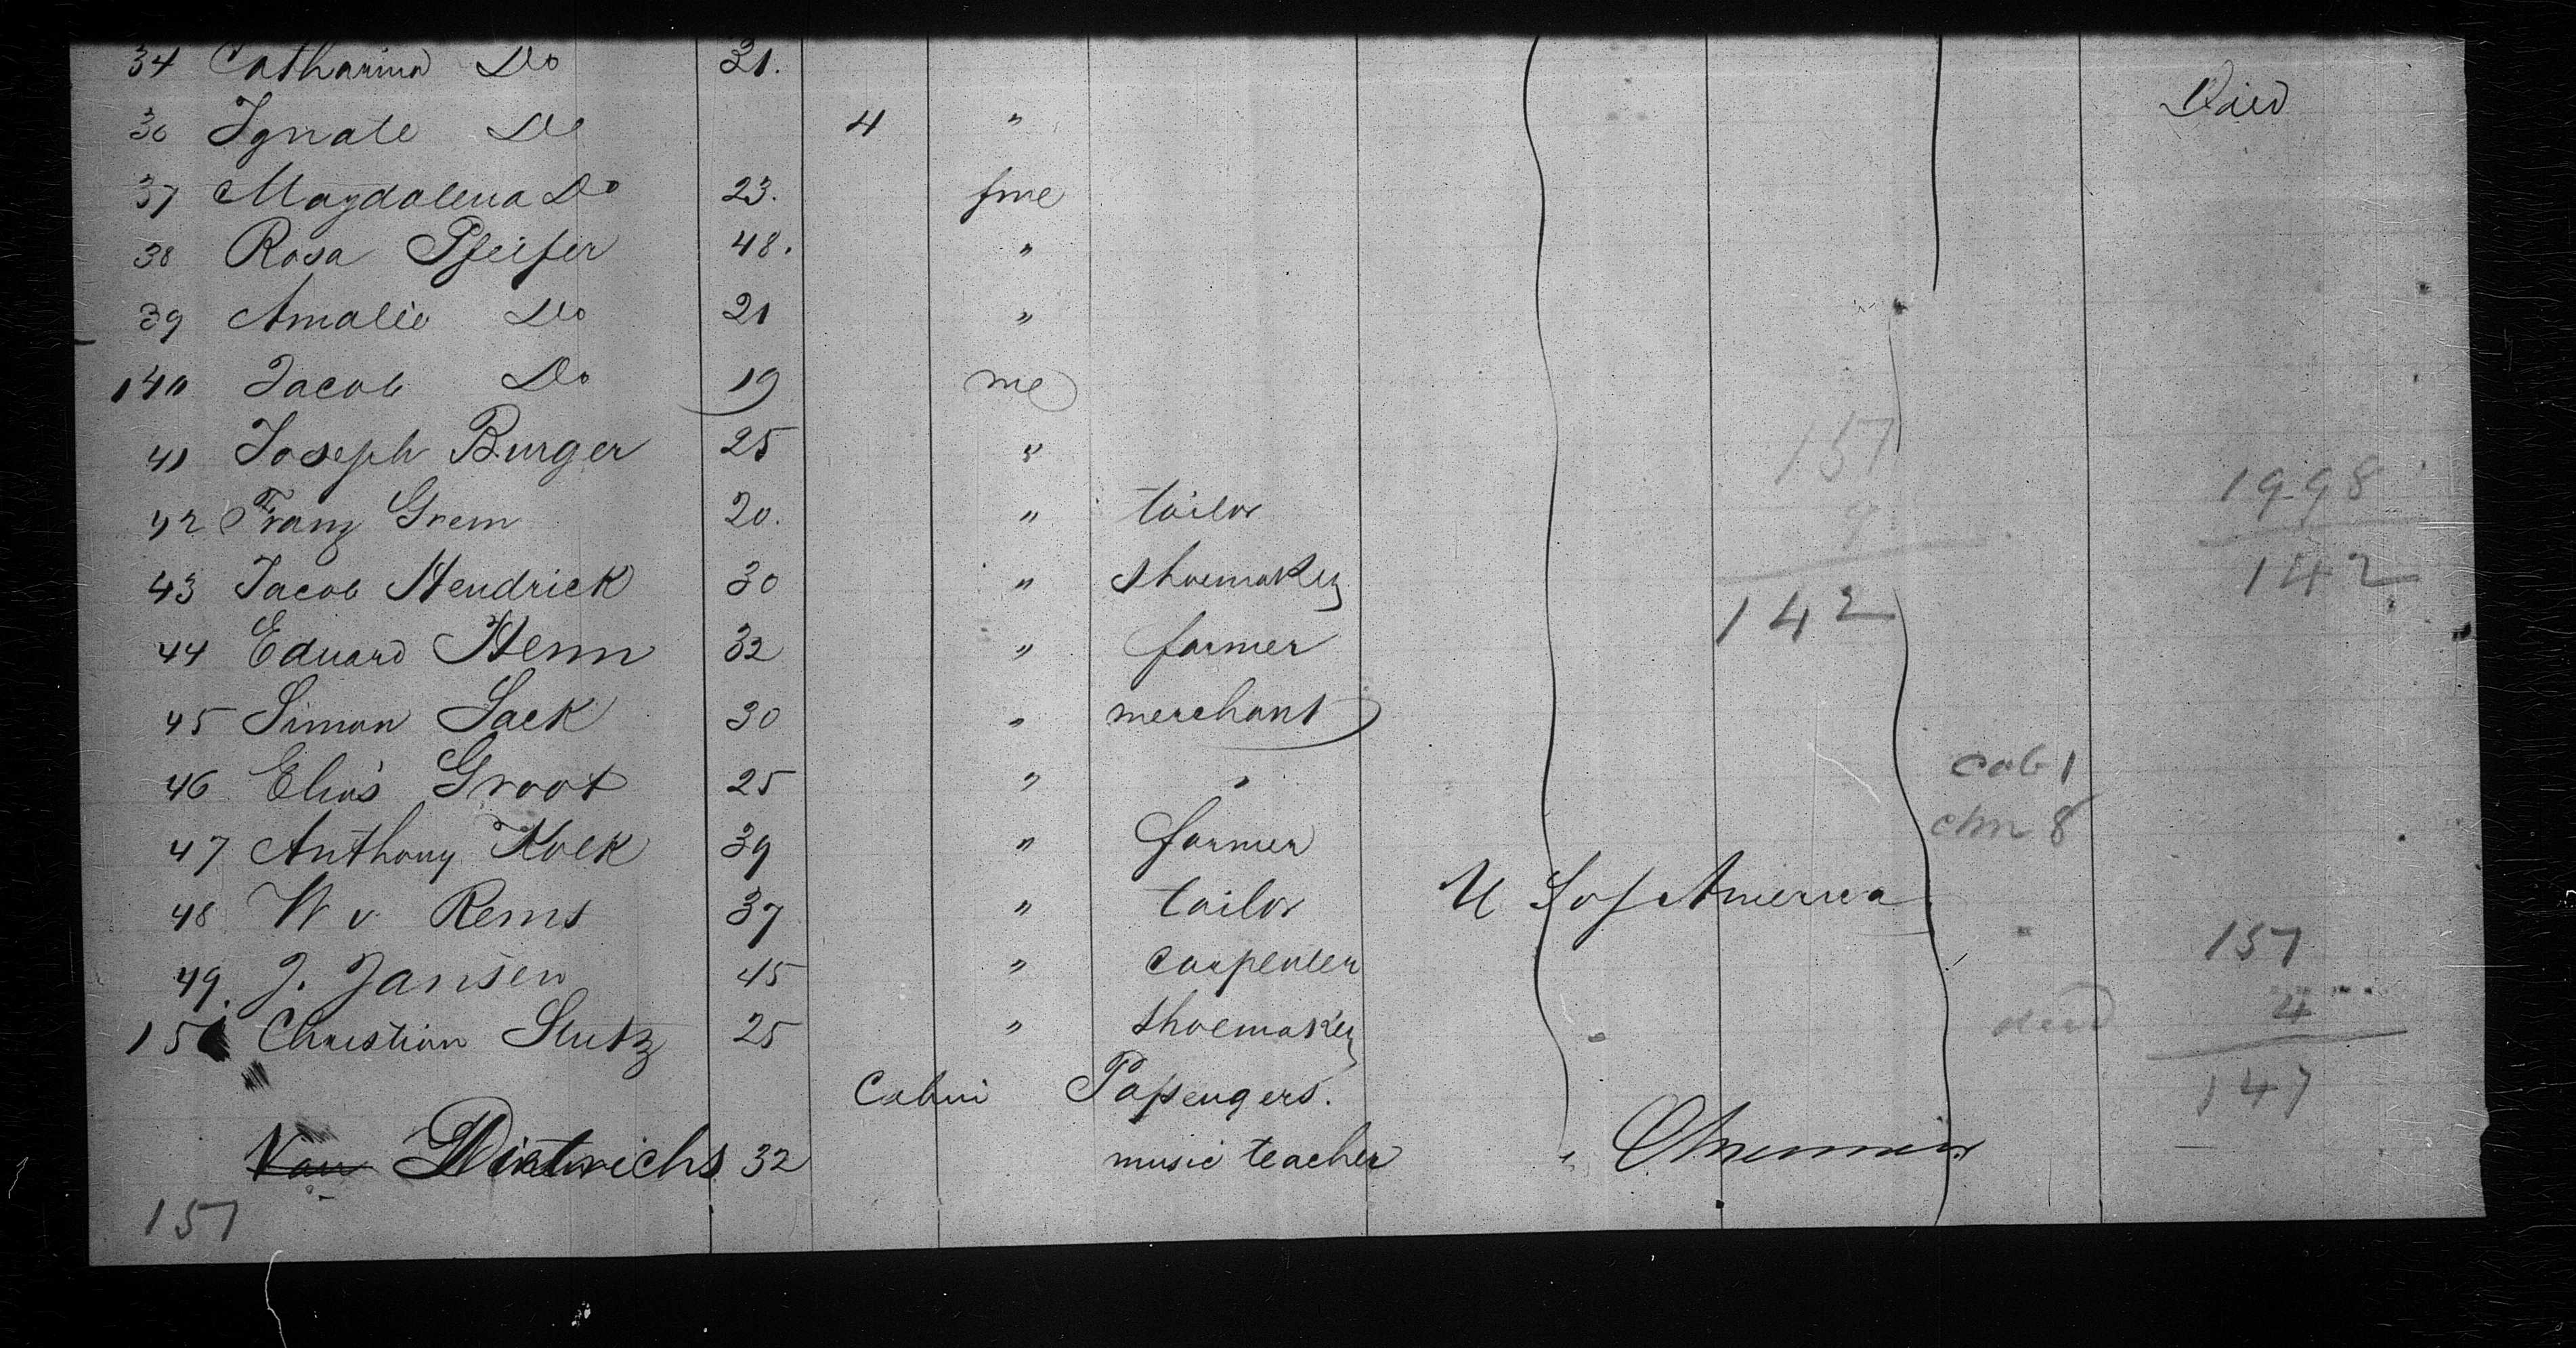 34 Catharina Do 21.
36 Ignate Do 4 " Died
37 Magdalena Do 23. fme
38 Rosa Pfeifer 48. "
39 Amalie Do 21 "
140 Jacob Do 19 me
41 Joseph Burger 25 " 157
42 Franz Grem 20. " tailor 9 1998
43 Jacob Hendrick 30 " shoemaker 142
44 Eduard Henn 32 " farmer 142
45 Simon Sack 30 " merchant
46 Elias Groot 25 " " cab 1
47 Anthony Kolk 39 " farmer chn 8
48 W v Rems 37 " tailor U S of America
49. J. Jansen 45 " carpenter 157
15 Christian Stutz 25 " shoemaker died 4
Cabin Passengers. 147
Van Dietrichs 32 music teacher "
157